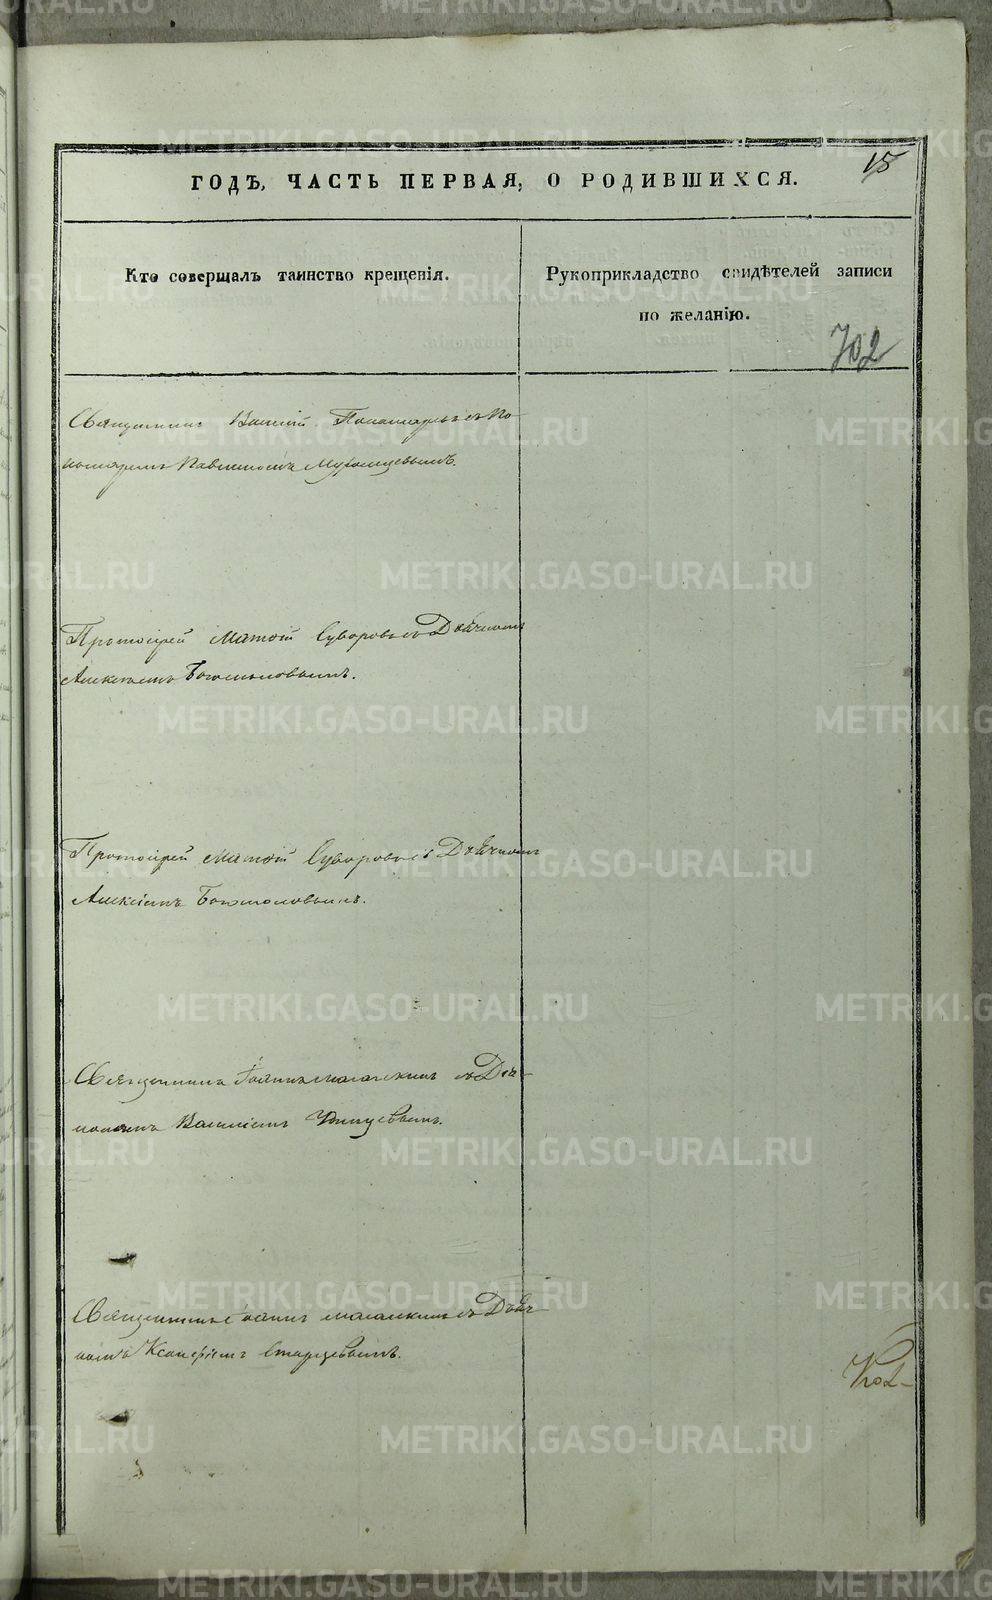 15
ГОДЪ, ЧАСТЬ ПЕРВАЯ, О РОДИВШИХСЯ.
Кто совершалъ таинство крещенія.
Рукоприкладство свидѣтелей записи
по желанію.
702
Священникъ Василій Пономаревъ съ По
номаремъ
Протоіерей Матѳій Суворовъ съ Дьячкомъ
Алексѣемъ Богомоловымъ.
Протоіерей Матѳій Суворовъ съ Дьячкомъ
Алексіемъ Богомоловымъ.
Священникъ Іоаннъ съ Діа-
кономъ Василіемъ
Священникъ Іоаннъ съ Дьяч
комъ Старцевымъ.
METRIKI.GASO-URAL.RU